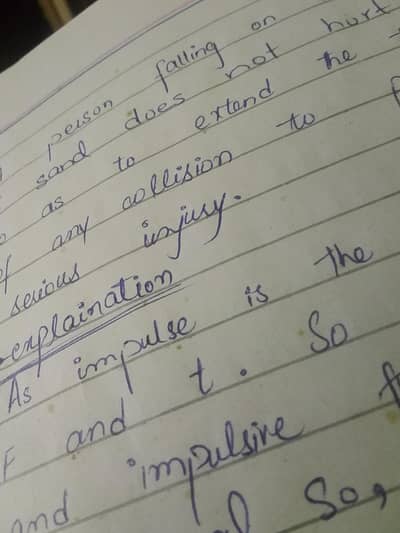 person falling on
sand does not hurt
as to extend the
of any collision to
serious injury.
explaination
As impulse is the
F and t. So
and impulsive
So,